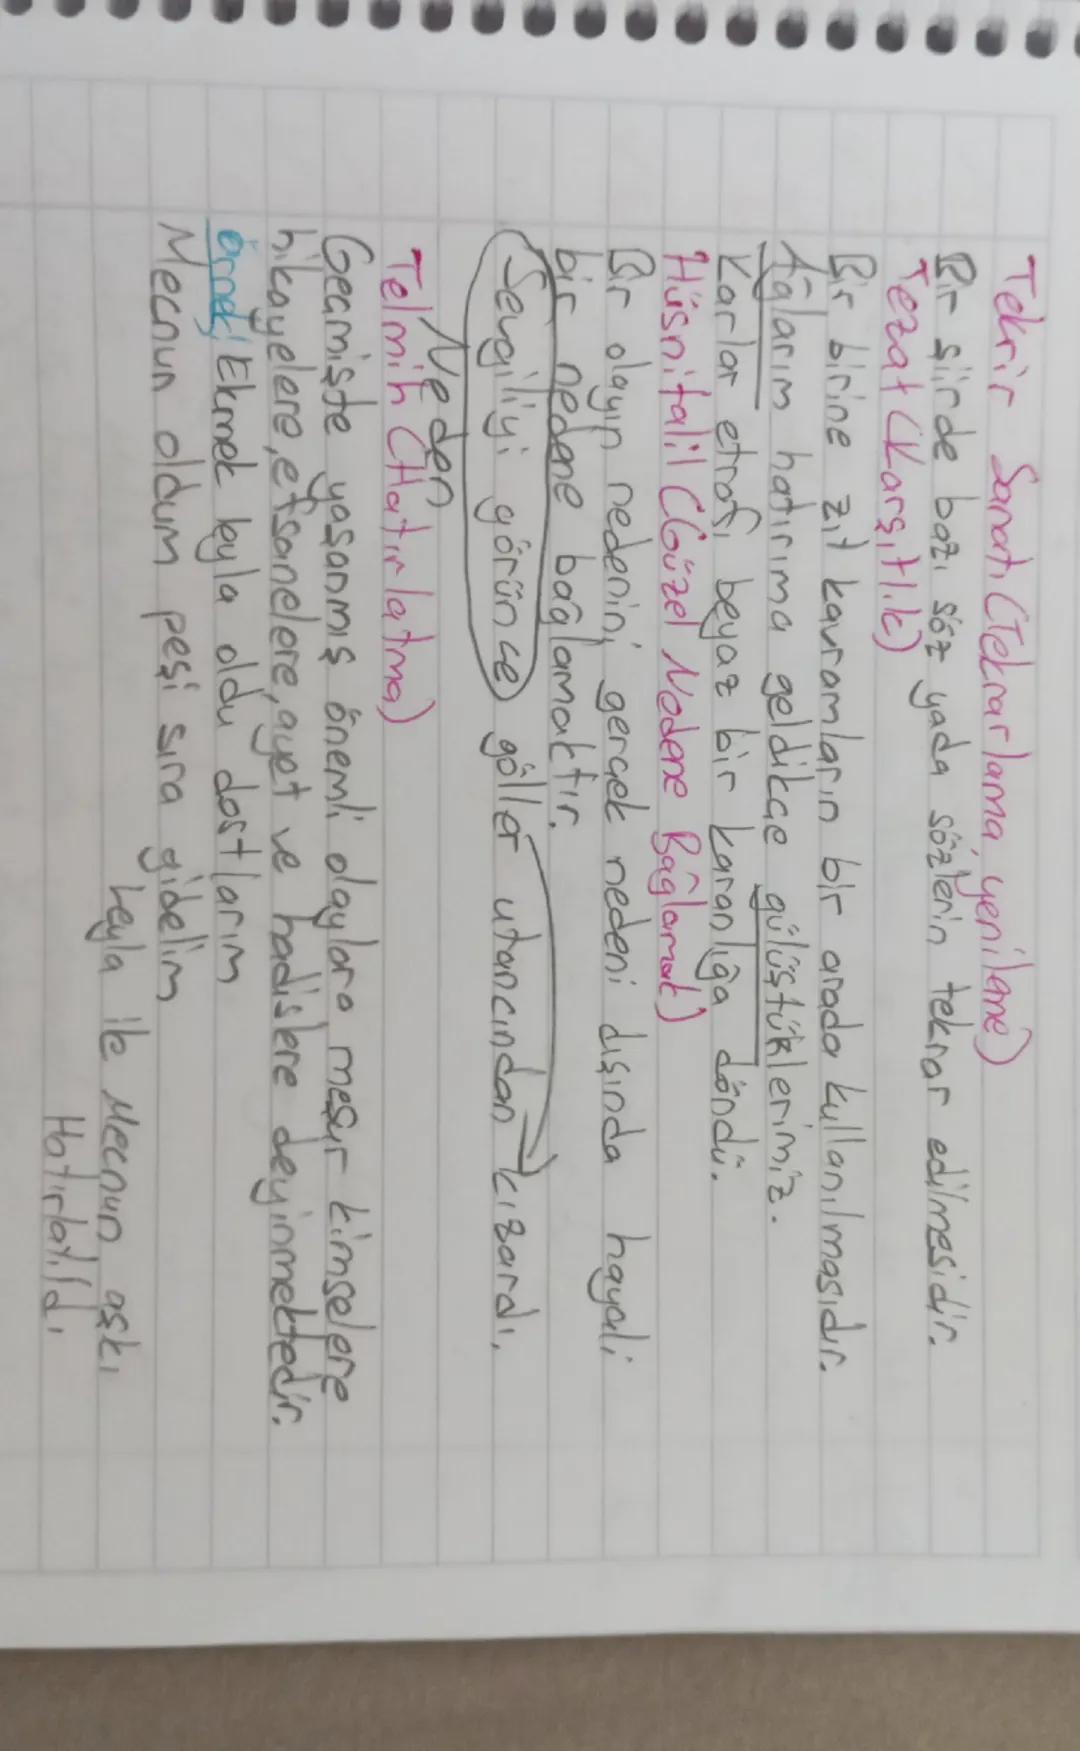 Tekrir Sanatı (Tekrarlama yenileme)
Bir şiirde bazı söz yada sözlerin tekrar edilmesidir.
Tezat (Karşıtlık)
Bir birine zıt kavramların bir arada kullanılmasıdır.
Ağlarım hatırıma geldikçe gülüştüklerimiz.
Karlar etrafı beyaz bir karanlığa döndü.
Hüsnitalil (Güzel Nedene Bağlamak)
Bir olayın nedenini gerçek nedeni dışında hayali
bir nedene bağlamaktır.
Sevgiliyi görünce güller utancından kızardı.
Neden
Telmih (Hatırlatma)
Geçmişte yaşanmış önemli olaylara meşur kimselere
hikayelere, efsanelere, ayet ve hadislere deyinmektedir.
örnek; Ekmek leyla oldu dostlarım
Mecnun oldum peşi sıra gidelim
Leyla ile Mecnun aşkı
Hatırlatıldı.